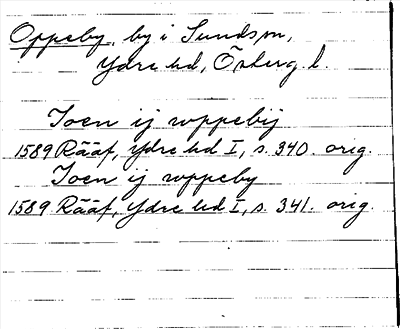 Oppeby, by i Sunds sn,
Ydre hd, Österg. l.
Joen ij uppebij
1589 Rääf, Ydre hd I, s. 340. orig.
Joen ij uppeby
1589 Rääf, Ydre hd I, s. 341. orig.